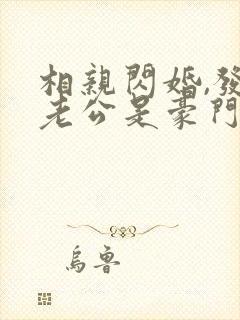 相親閃婚,發
老公是豪門
烏魯